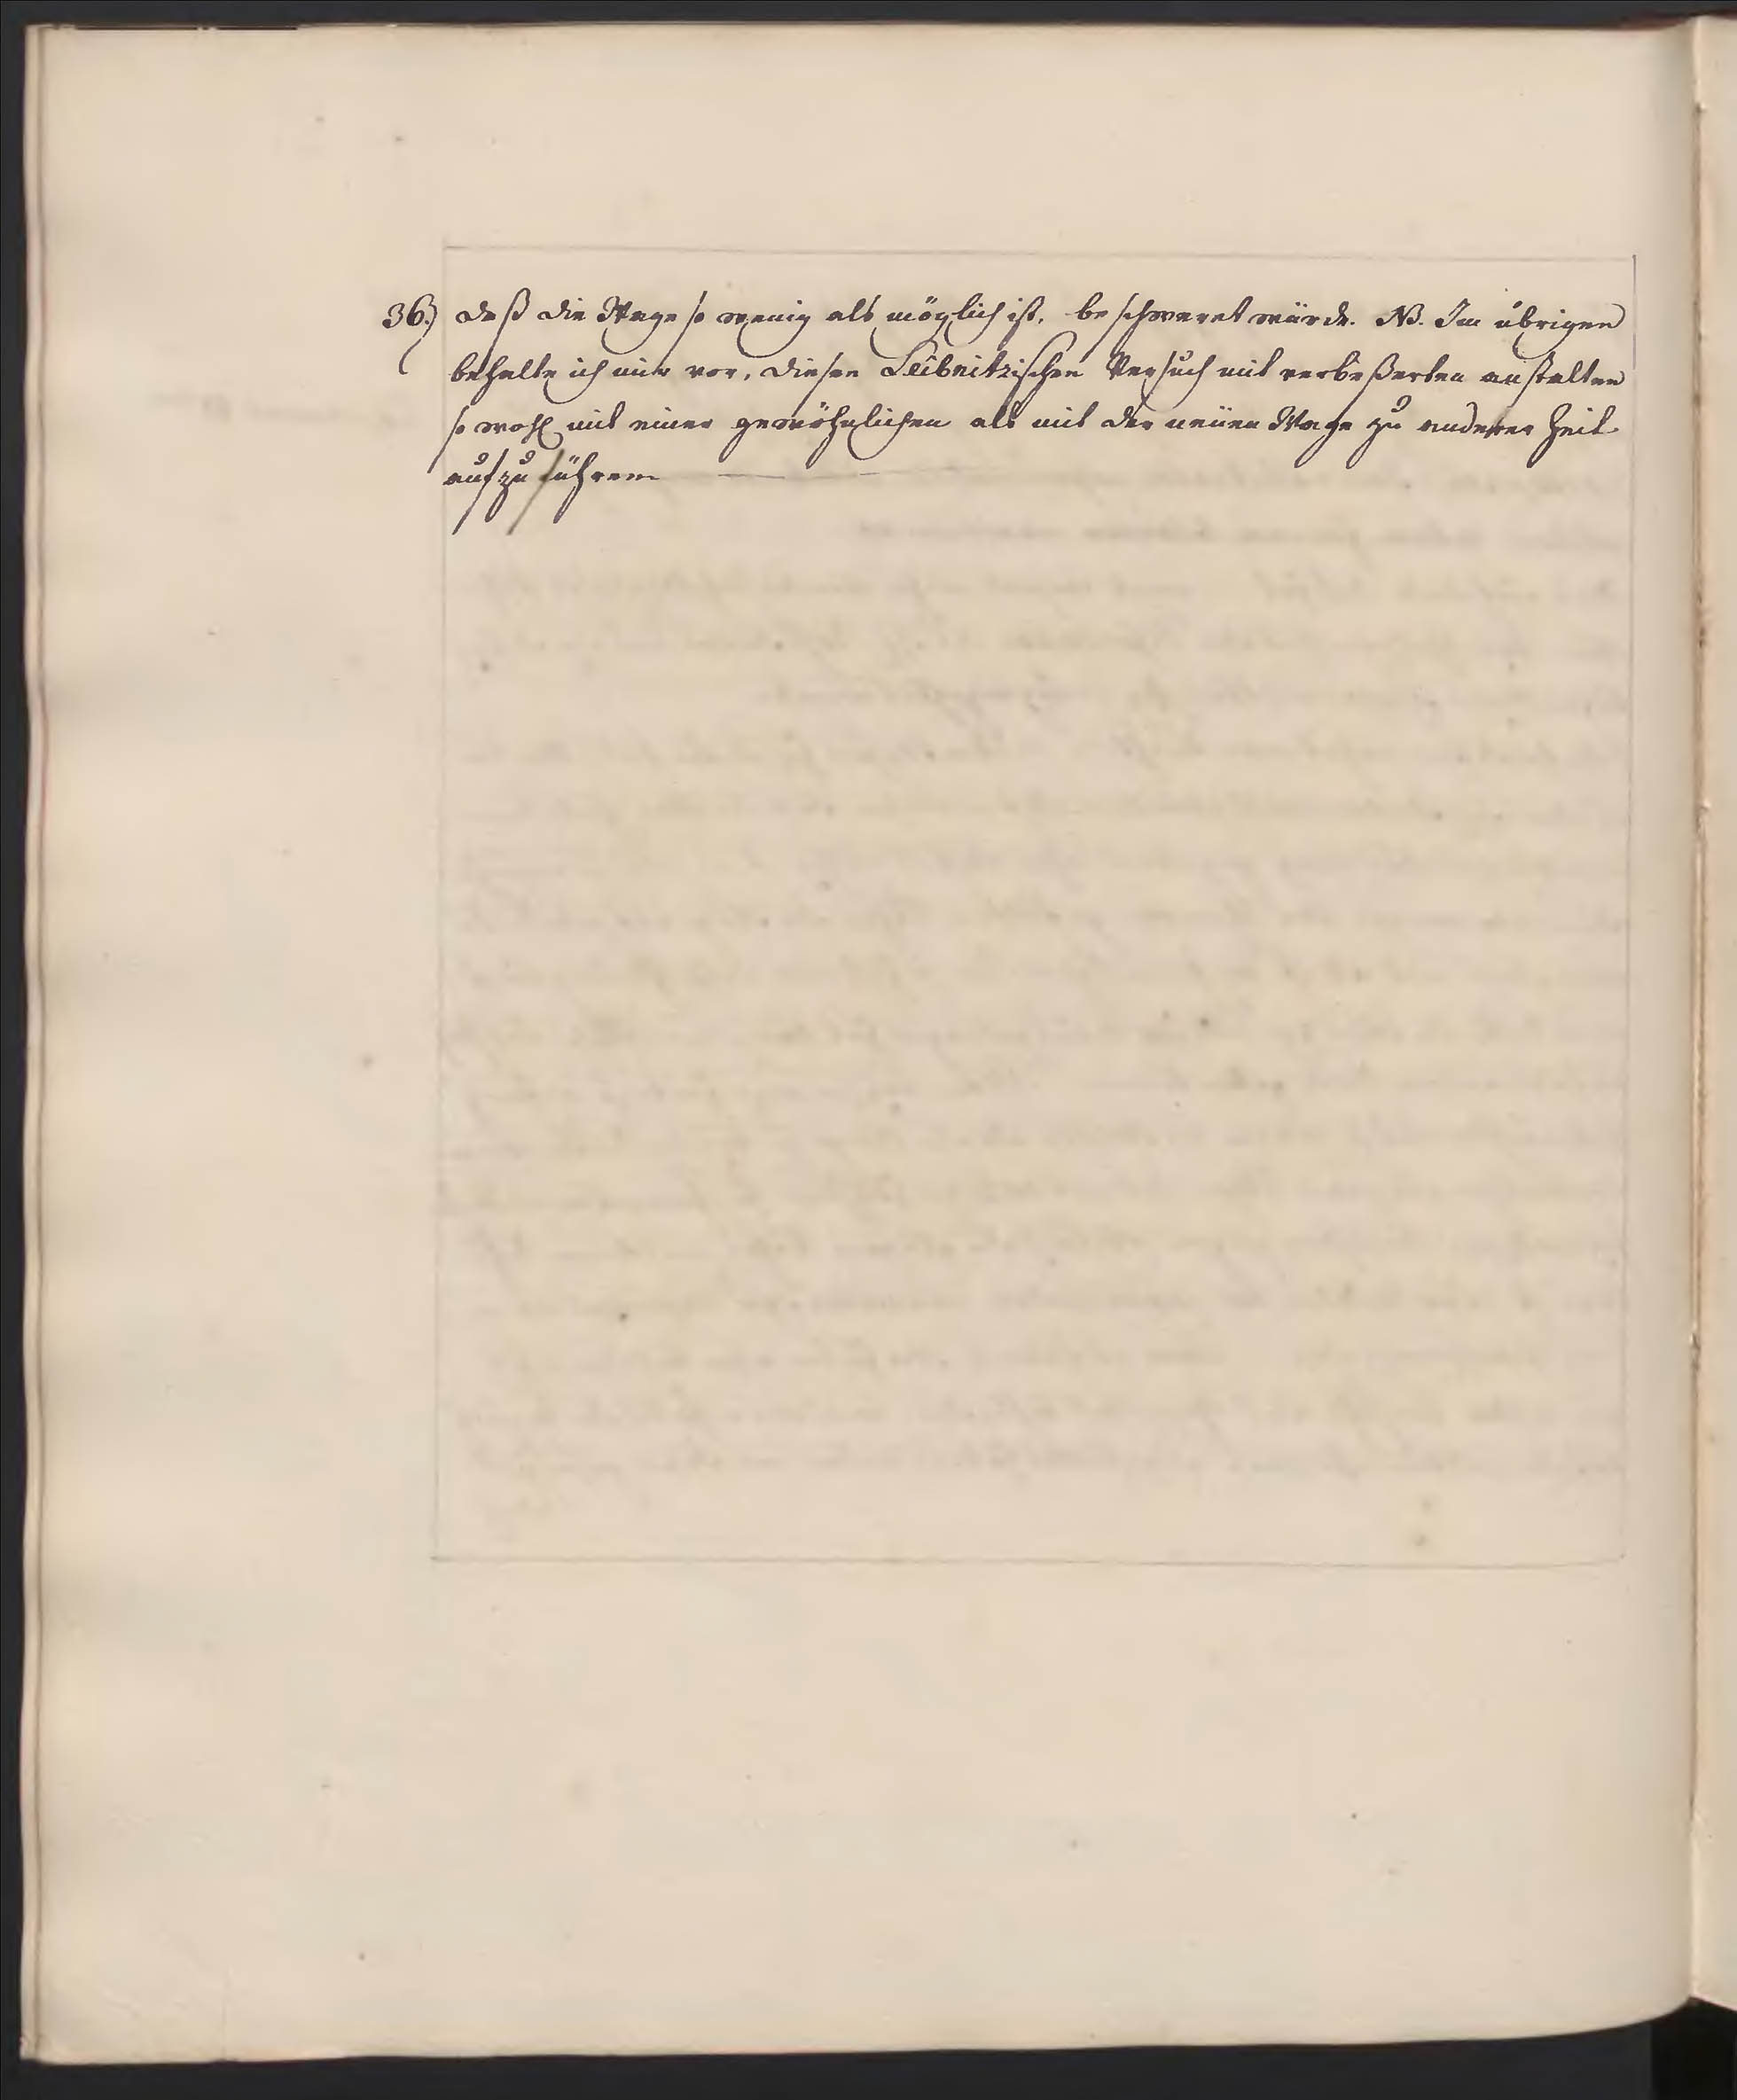 36.) daß die Wage so wenig als möglich ist, beschweret würde. NB. Im übrigen
behalte ich mir vor, diesen Leibnitzischen Versuch mit verbeßerten anstalten
so wohl mit einer gewöhnlichen als mit der neüen Wage zu anderer Zeit
aufzuführen